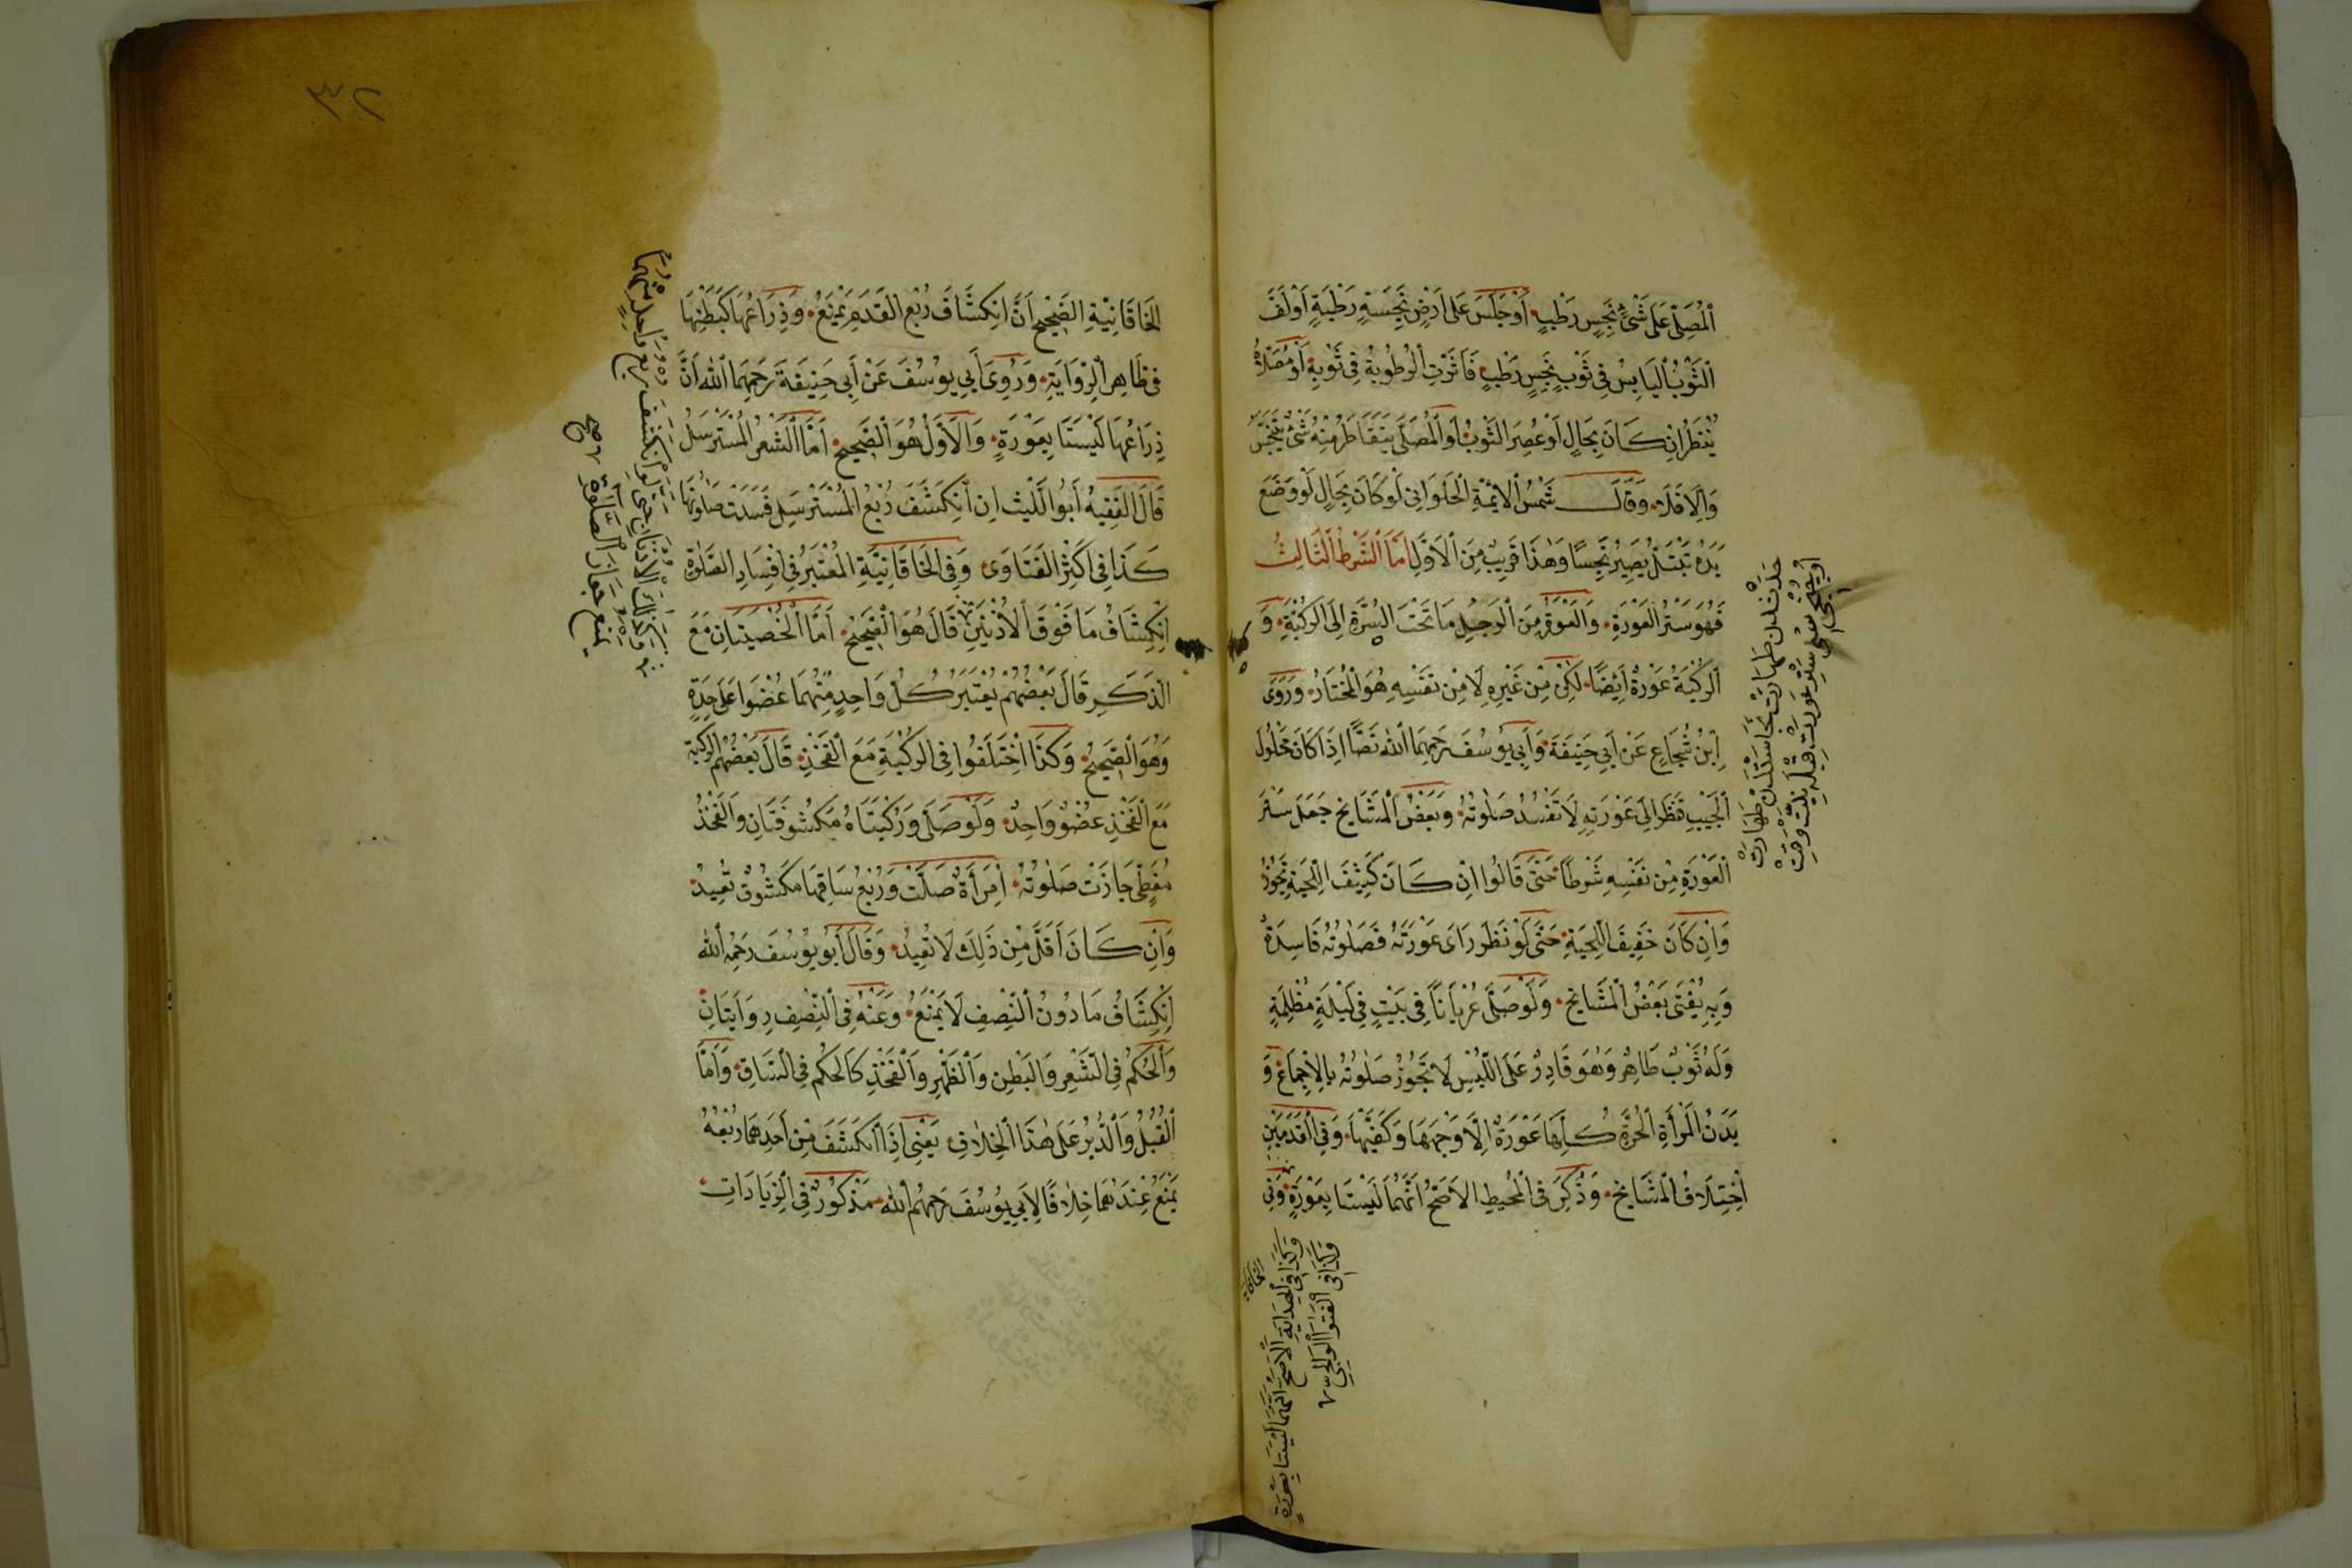 اَلْمُصَلِّي عَلَى شَيْءٍ نَجِسٍ رَطْبٍ اَوْ جَلَسَ عَلَى اَرْضٍ نَجِسَةٍ رَطْبَةٍ اَوْ لَفَّ
الثَّوْبَ الْيَابِسَ فِي ثَوْبٍ نَجِسٍ رَطْبٍ فَاَثَرَتِ الرُّطُوبَةُ فِي ثَوْبِهِ اَوْ مُصَلَّاهُ
يُنْظَرُ اِنْ كَانَ بِحَالٍ لَوْ عُصِرَ الثَّوْبُ اَوِ الْمُصَلَّى يَتَقَاطَرُ مِنْهُ شَيْءٌ يَنْجَسُ
وَاِلَّا فَلَا وَقَالَ شَمْسُ الْاَئِمَّةِ الْحَلْوَانِي لَوْ كَانَ بِحَالٍ لَوْ وَضَعَ
يَدَهُ تَبْتَلُّ يَصِيرُ نَجِسًا وَهٰذَا قَرِيبٌ مِنَ الْاَوَّلِ اَمَّا الشَّرْطُ الثَّالِثُ
فَهُوَ سَتْرُ الْعَوْرَةِ وَالْعَوْرَةُ مِنَ الرَّجُلِ مَا تَحْتَ السُّرَّةِ اِلَى الرُّكْبَةِ وَ
الرُّكْبَةُ عَوْرَةٌ اَيْضًا لٰكِنْ مِنْ غَيْرِهِ لَا مِنْ نَفْسِهِ هُوَ الْمُخْتَارُ وَرَوَى
اِبْنُ شُجَاعٍ عَنْ اَبِي حَنِيفَةَ وَاَبِي يُوسُفَ رَحِمَهُمَا اللّٰهُ نَصًّا اِذَا كَانَ مَحْلُولَ
الْجَيْبِ فَنَظَرَ اِلَى عَوْرَتِهِ لَا تَفْسُدُ صَلٰوتُهُ وَبَعْضُ الْمَشَايِخِ جَعَلَ سَتْرَ
الْعَوْرَةِ مِنْ نَفْسِهِ شَرْطًا حَتَّى قَالُوا اِنْ كَانَ كَثِيفَ اللِّحْيَةِ تَجُوزُ
وَاِنْ كَانَ خَفِيفَ اللِّحْيَةِ حَتَّى لَوْ نَظَرَ رَاٰى عَوْرَتَهُ فَصَلٰوتُهُ فَاسِدَةٌ
وَبِهِ يُفْتِي بَعْضُ الْمَشَايِخِ وَلَوْ صَلَّى عُرْيَانًا فِي بَيْتٍ فِي لَيْلَةٍ مُظْلِمَةٍ
وَلَهُ ثَوْبٌ طَاهِرٌ وَهُوَ قَادِرٌ عَلَى اللُّبْسِ لَا تَجُوزُ صَلٰوتُهُ بِالْاِجْمَاعِ وَ
بَدَنُ الْمَرْاَةِ الْحُرَّةِ كُلُّهَا عَوْرَةٌ اِلَّا وَجْهَهَا وَكَفَّيْهَا وَفِي الْقَدَمَيْنِ
اخْتِلَافُ الْمَشَايِخِ وَذُكِرَ فِي الْمُحِيطِ الْاَصَحُّ اَنَّهُمَا لَيْسَتَا بِعَوْرَةٍ وَفِي
حدثدن طهارت نجاستدن طهارت
اوچنجی ستر عورت قبله نیت وقت
وَكَذَا فِي الْفَتَوَا
وَكَذَا فِي الْهِدَايَةِ الْاَصَحُّ اَنَّهُمَا لَيْسَتَا بِعَوْرَةٍ
الْخَاقَانِيَّةِ
٣٢
الْخَاقَانِيَّةِ الصَّحِيحُ اَنَّ انْكِشَافَ رُبْعِ الْقَدَمِ يَمْنَعُ وَذِرَاعُهَا كَبَطْنِهَا
فِي ظَاهِرِ الرِّوَايَةِ وَرُوِيَ اَبِي يُوسُفَ عَنْ اَبِي حَنِيفَةَ رَحِمَهُمَا اللّٰهُ اَنَّ
ذِرَاعَهَا لَيْسَتَا بِعَوْرَةٍ وَالْاَوَّلُ هُوَ الصَّحِيحُ اَمَّا الشَّعْرُ الْمُسْتَرْسِلُ
قَالَ الْفَقِيهُ اَبُو اللَّيْثِ اِنِ انْكَشَفَ رُبْعُ الْمُسْتَرْسِلِ فَسَدَتْ صَلٰوتُهَا
كَذَا فِي اَكْثَرِ الْفَتَاوَى وَفِي الْخَاقَانِيَّةِ الْمُعْتَبَرُ فِي اِفْسَادِ الصَّلٰوةِ
اِنْكِشَافُ مَا فَوْقَ الْاُذُنَيْنِ قَالَ هُوَ الصَّحِيحُ اَمَّا الْخُصْيَتَانِ مَعَ
الذَّكَرِ قَالَ بَعْضُهُمْ يُعْتَبَرُ كُلُّ وَاحِدٍ مِنْهُمَا عُضْوًا عَلَى حِدَةٍ
وَهُوَ الصَّحِيحُ وَكَذَا اخْتَلَفُوا فِي الرُّكْبَةِ مَعَ الْفَخْذِ قَالَ بَعْضُهُمُ الرُّكْبَةُ
مَعَ الْفَخْذِ عُضْوٌ وَاحِدٌ وَلَوْ صَلَّى وَرُكْبَتَاهُ مَكْشُوفَتَانِ وَالْفَخْذُ
مُغَطًّى جَازَتْ صَلٰوتُهُ اِمْرَاَةٌ صَلَّتْ وَرُبْعُ سَاقِهَا مَكْشُوفٌ تُعِيدُ
وَاِنْ كَانَ اَقَلَّ مِنْ ذَلِكَ لَا تُعِيدُ وَقَالَ اَبُو يُوسُفَ رَحِمَهُ اللّٰهُ
اِنْكِشَافُ مَا دُونَ النِّصْفِ لَا يَمْنَعُ وَعَنْهُ فِي النِّصْفِ رِوَايَتَانِ
وَالْحُكْمُ فِي الشَّعْرِ وَالْبَطْنِ وَالظَّهْرِ وَالْفَخْذِ كَالْحُكْمِ فِي السَّاقِ وَاَمَّا
الْقُبُلُ وَالدُّبُرُ عَلَى هٰذَا الْخِلَافِ يَعْنِي اِذَا انْكَشَفَ مِنْ اَحَدِهِمَا رُبْعُهُ
يَمْنَعُ عِنْدَهُمَا خِلَافًا لِاَبِي يُوسُفَ رَحِمَهُمُ اللّٰهُ مَذْكُورٌ فِي الزِّيَادَاتِ
وَكَذٰلِكَ الْاُذُنَانِ حَتَّى لَوِ انْكَشَفَ رُبْعُ وَاحِدٍ مِنْهُمَا
يَمْنَعُ جَوَازَ الصَّلٰوةِ صح